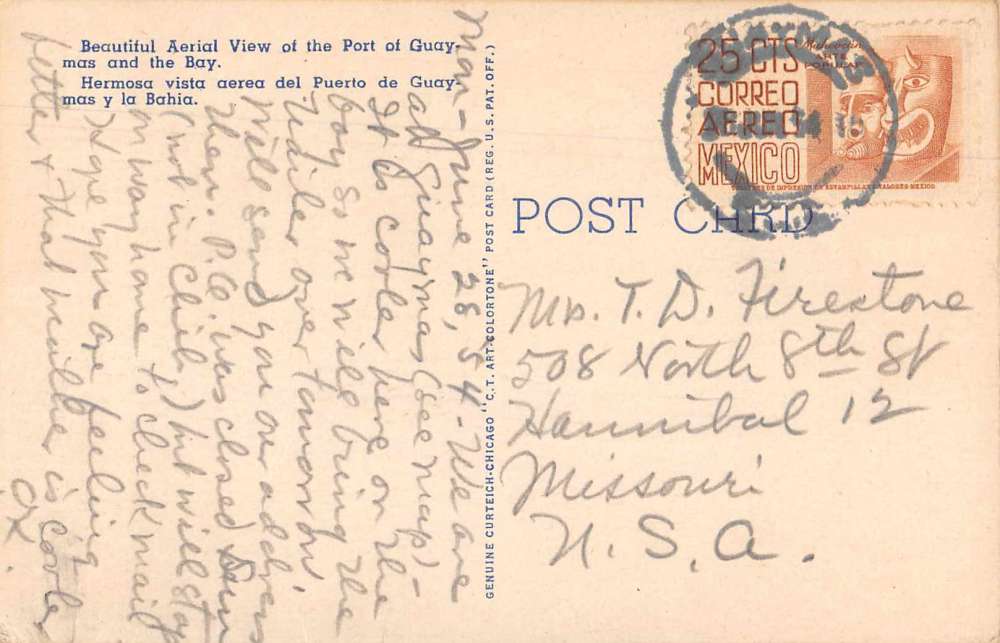 Beautiful Aerial View of the Port of Guay-
mas and the Bay.
Hermosa vista aerea del Puerto de Guay-
mas y la Bahia.
Mon - June 28, 54 - We are
at Guaymas (see map) -
It is cooler here on the
bay so we will bring the
trailer over tomorrow.
Will send you our address
then. P.O. was closed Sun
(not in Chih.) but will stop
on way home to check mail
Hope you are feeling
better & that weather is cooler
GENUINE CURTEICH-CHICAGO "C.T. ART-COLORTONE" POST CARD (REG. U.S. PAT. OFF.)
25 CTS
CORREO
AEREO
MEXICO
POST CARD
Mrs. T. D. Firestone
508 North 8th St
Hannibal 12
Missouri
U. S. A.